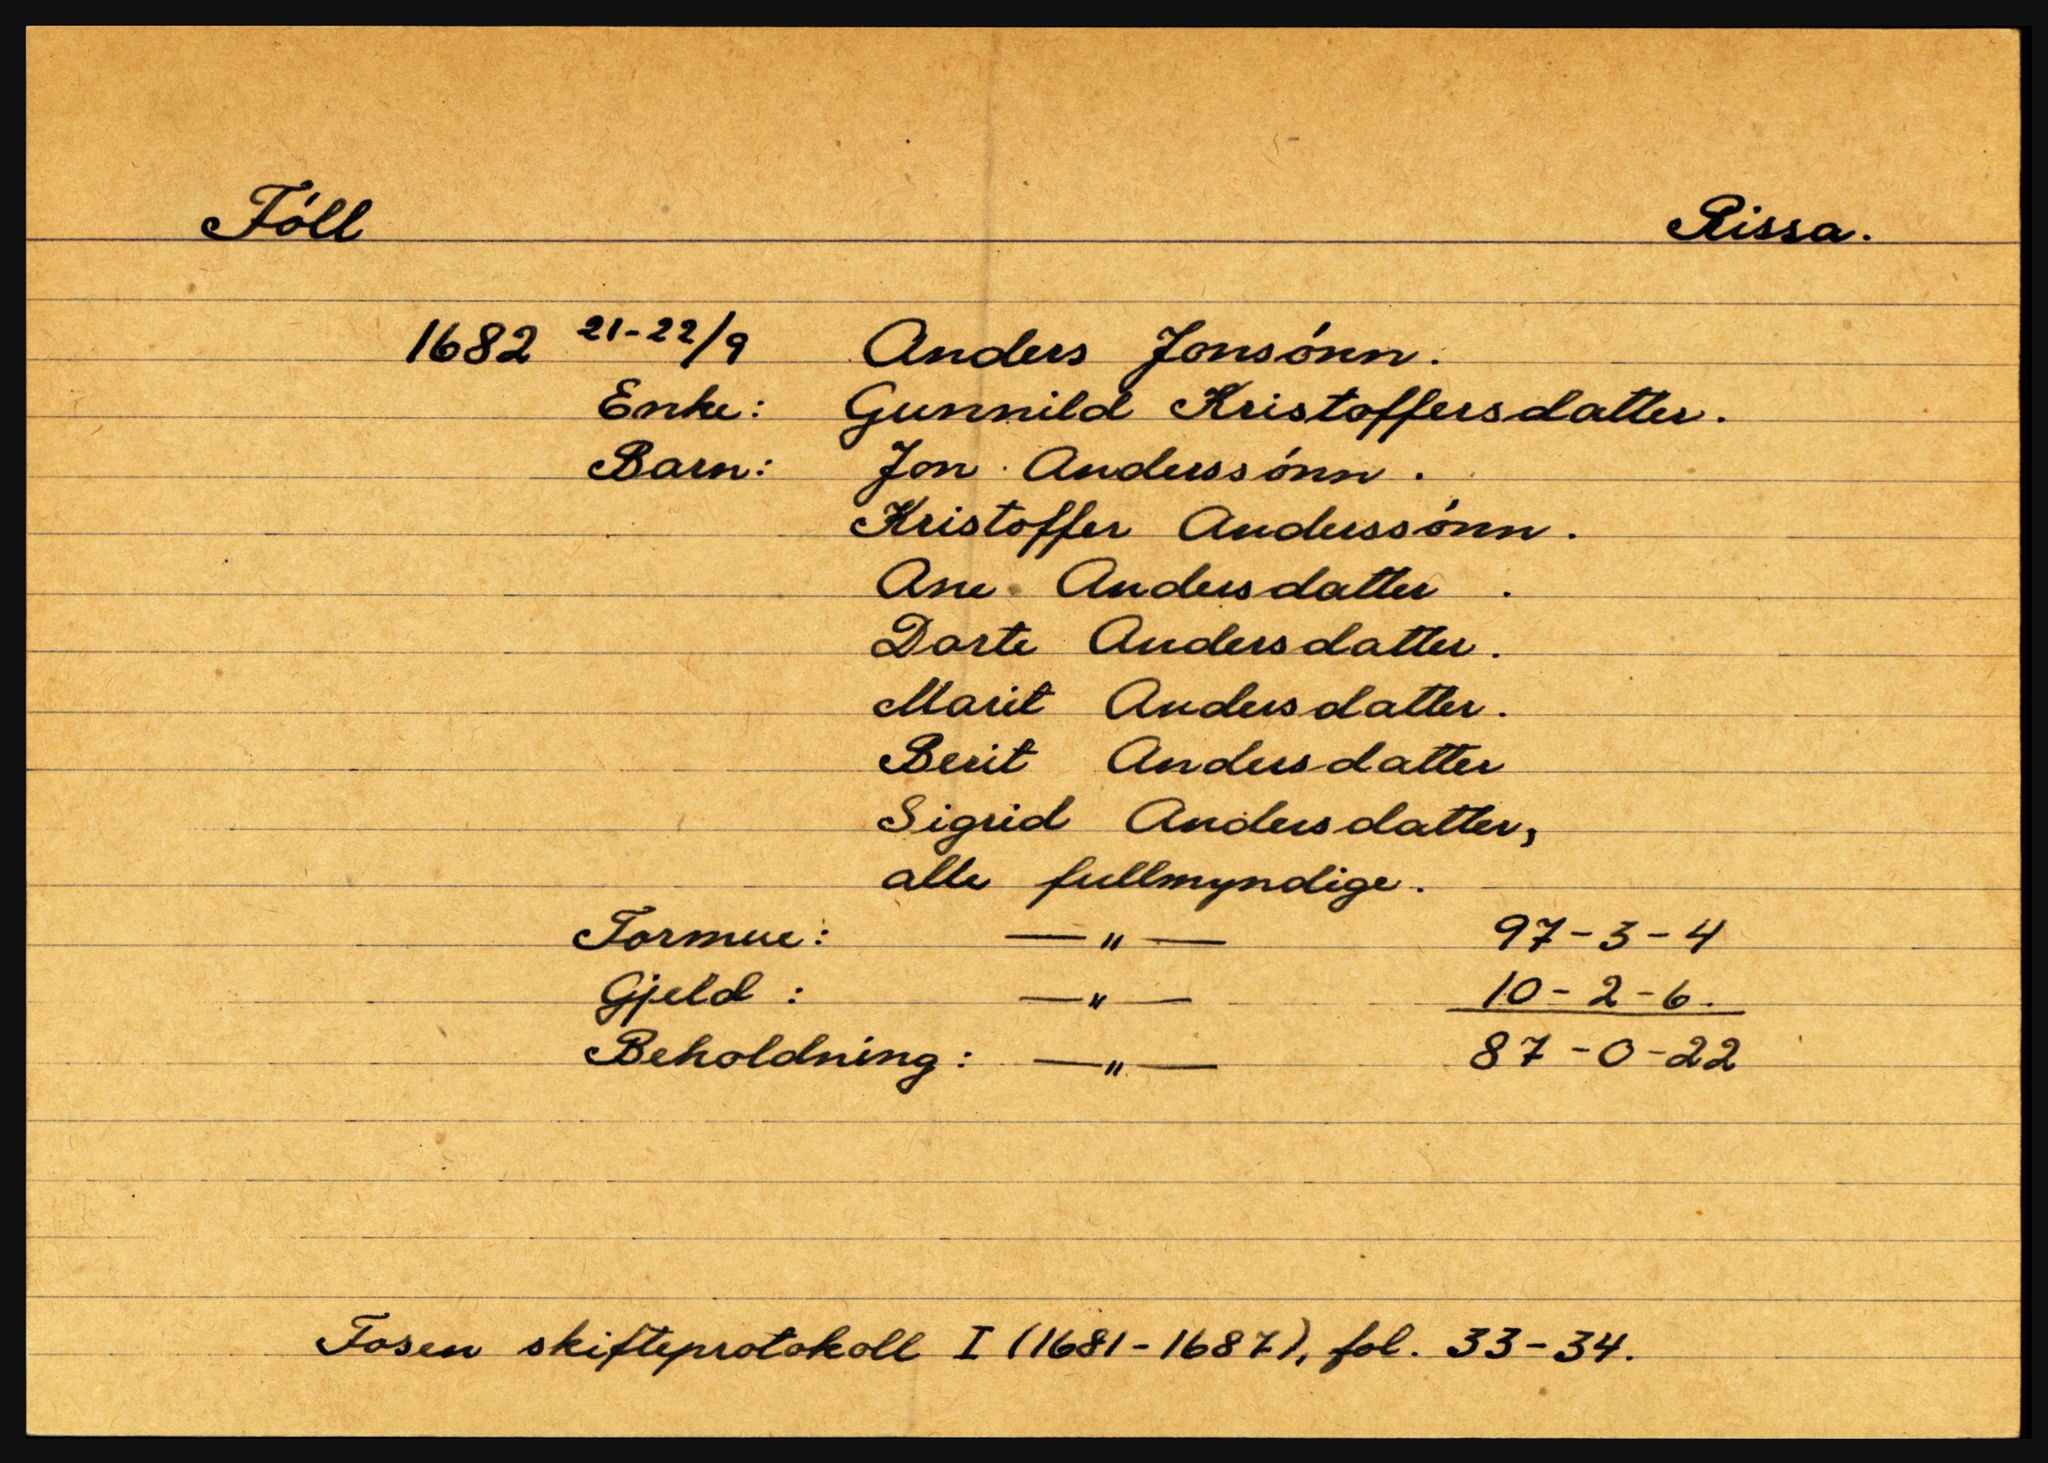 Föll Rissa.
1682 21-22/9 Anders Jonsónn.
Enke: Gunnild Kristoffersdatter.
Barn: Jon Anderssónn.
Kristoffer Anderssónn.
Ane Andersdatter.
Dorte Andersdatter.
Marit Andersdatter.
Berit Andersdatter
Sigrid Andersdatter,
alle fullmyndige.
Formue: —"— 97-3-4
Gjeld: —"— 10-2-6.
Beholdning: —"— 87-0-22
Fosen skifteprotokoll I (1681-1687), fol. 33-34.